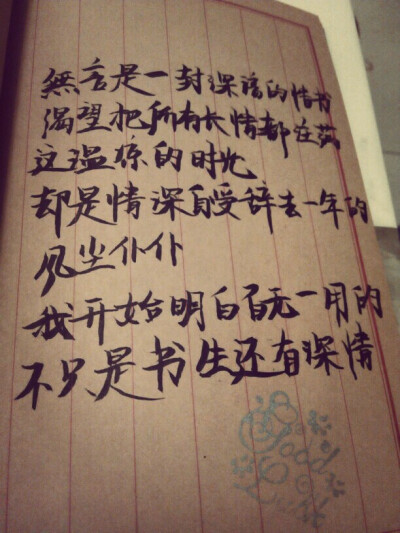 無言是一封深的情书
渴望把所有长情都在
这温凉的时光
却是情深自受辞去一年的
风尘仆仆
我开始明白百无一用的
不只是书生还有深情
Good
Luck